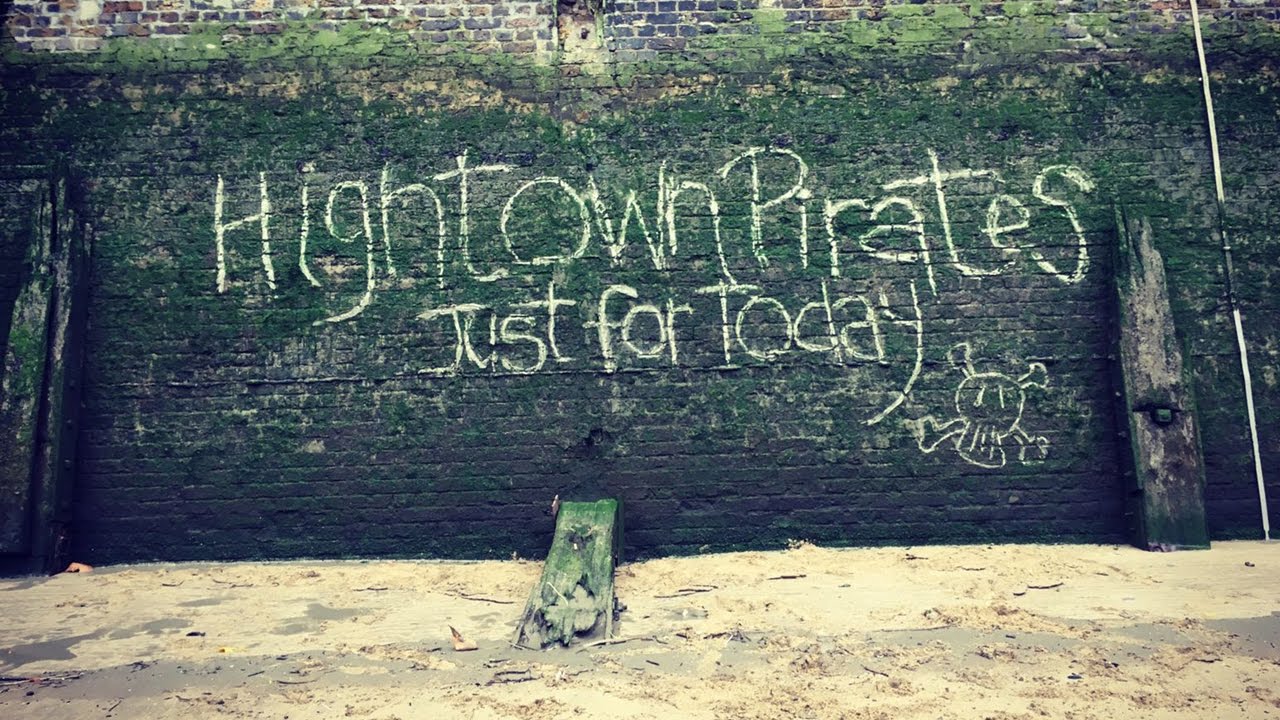 Hightown Pirates
Just for Today